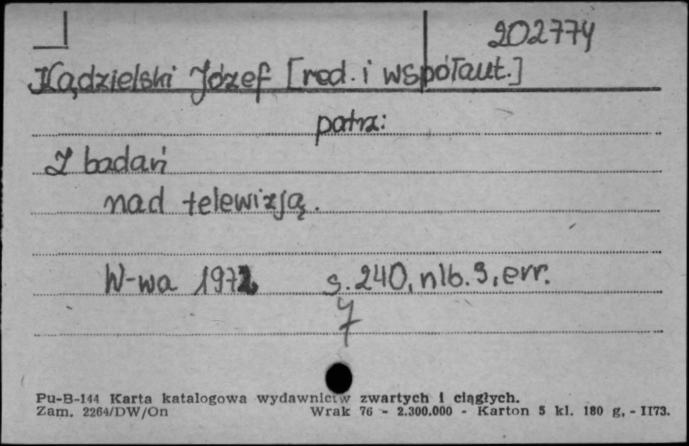 202774
Kądzielski Józef [red. i współaut.]
patrz:
Z badań
nad telewizją.
W-wa 1972 s. 240, nlb. 3, err.
Pu-B-144 Karta katalogowa wydawnictw zwartych i ciągłych.
Zam. 2264/DW/On Wrak 76 - 2.300.000 - Karton 5 kl. 180 g. - 1173.